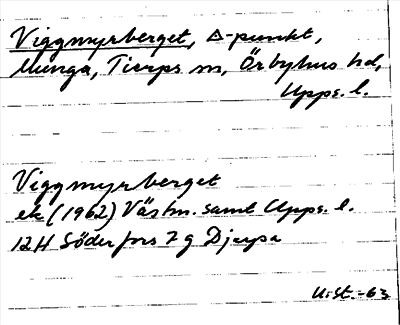 Viggmyrberget, Δ-punkt,
Munga, Tierps sn, Örbyhus hd,
Upps. l.
Viggmyrberget
ek (1962) Västm. samt Upps. l.
12H Söderfors 7 g Djupa
U.St. -63